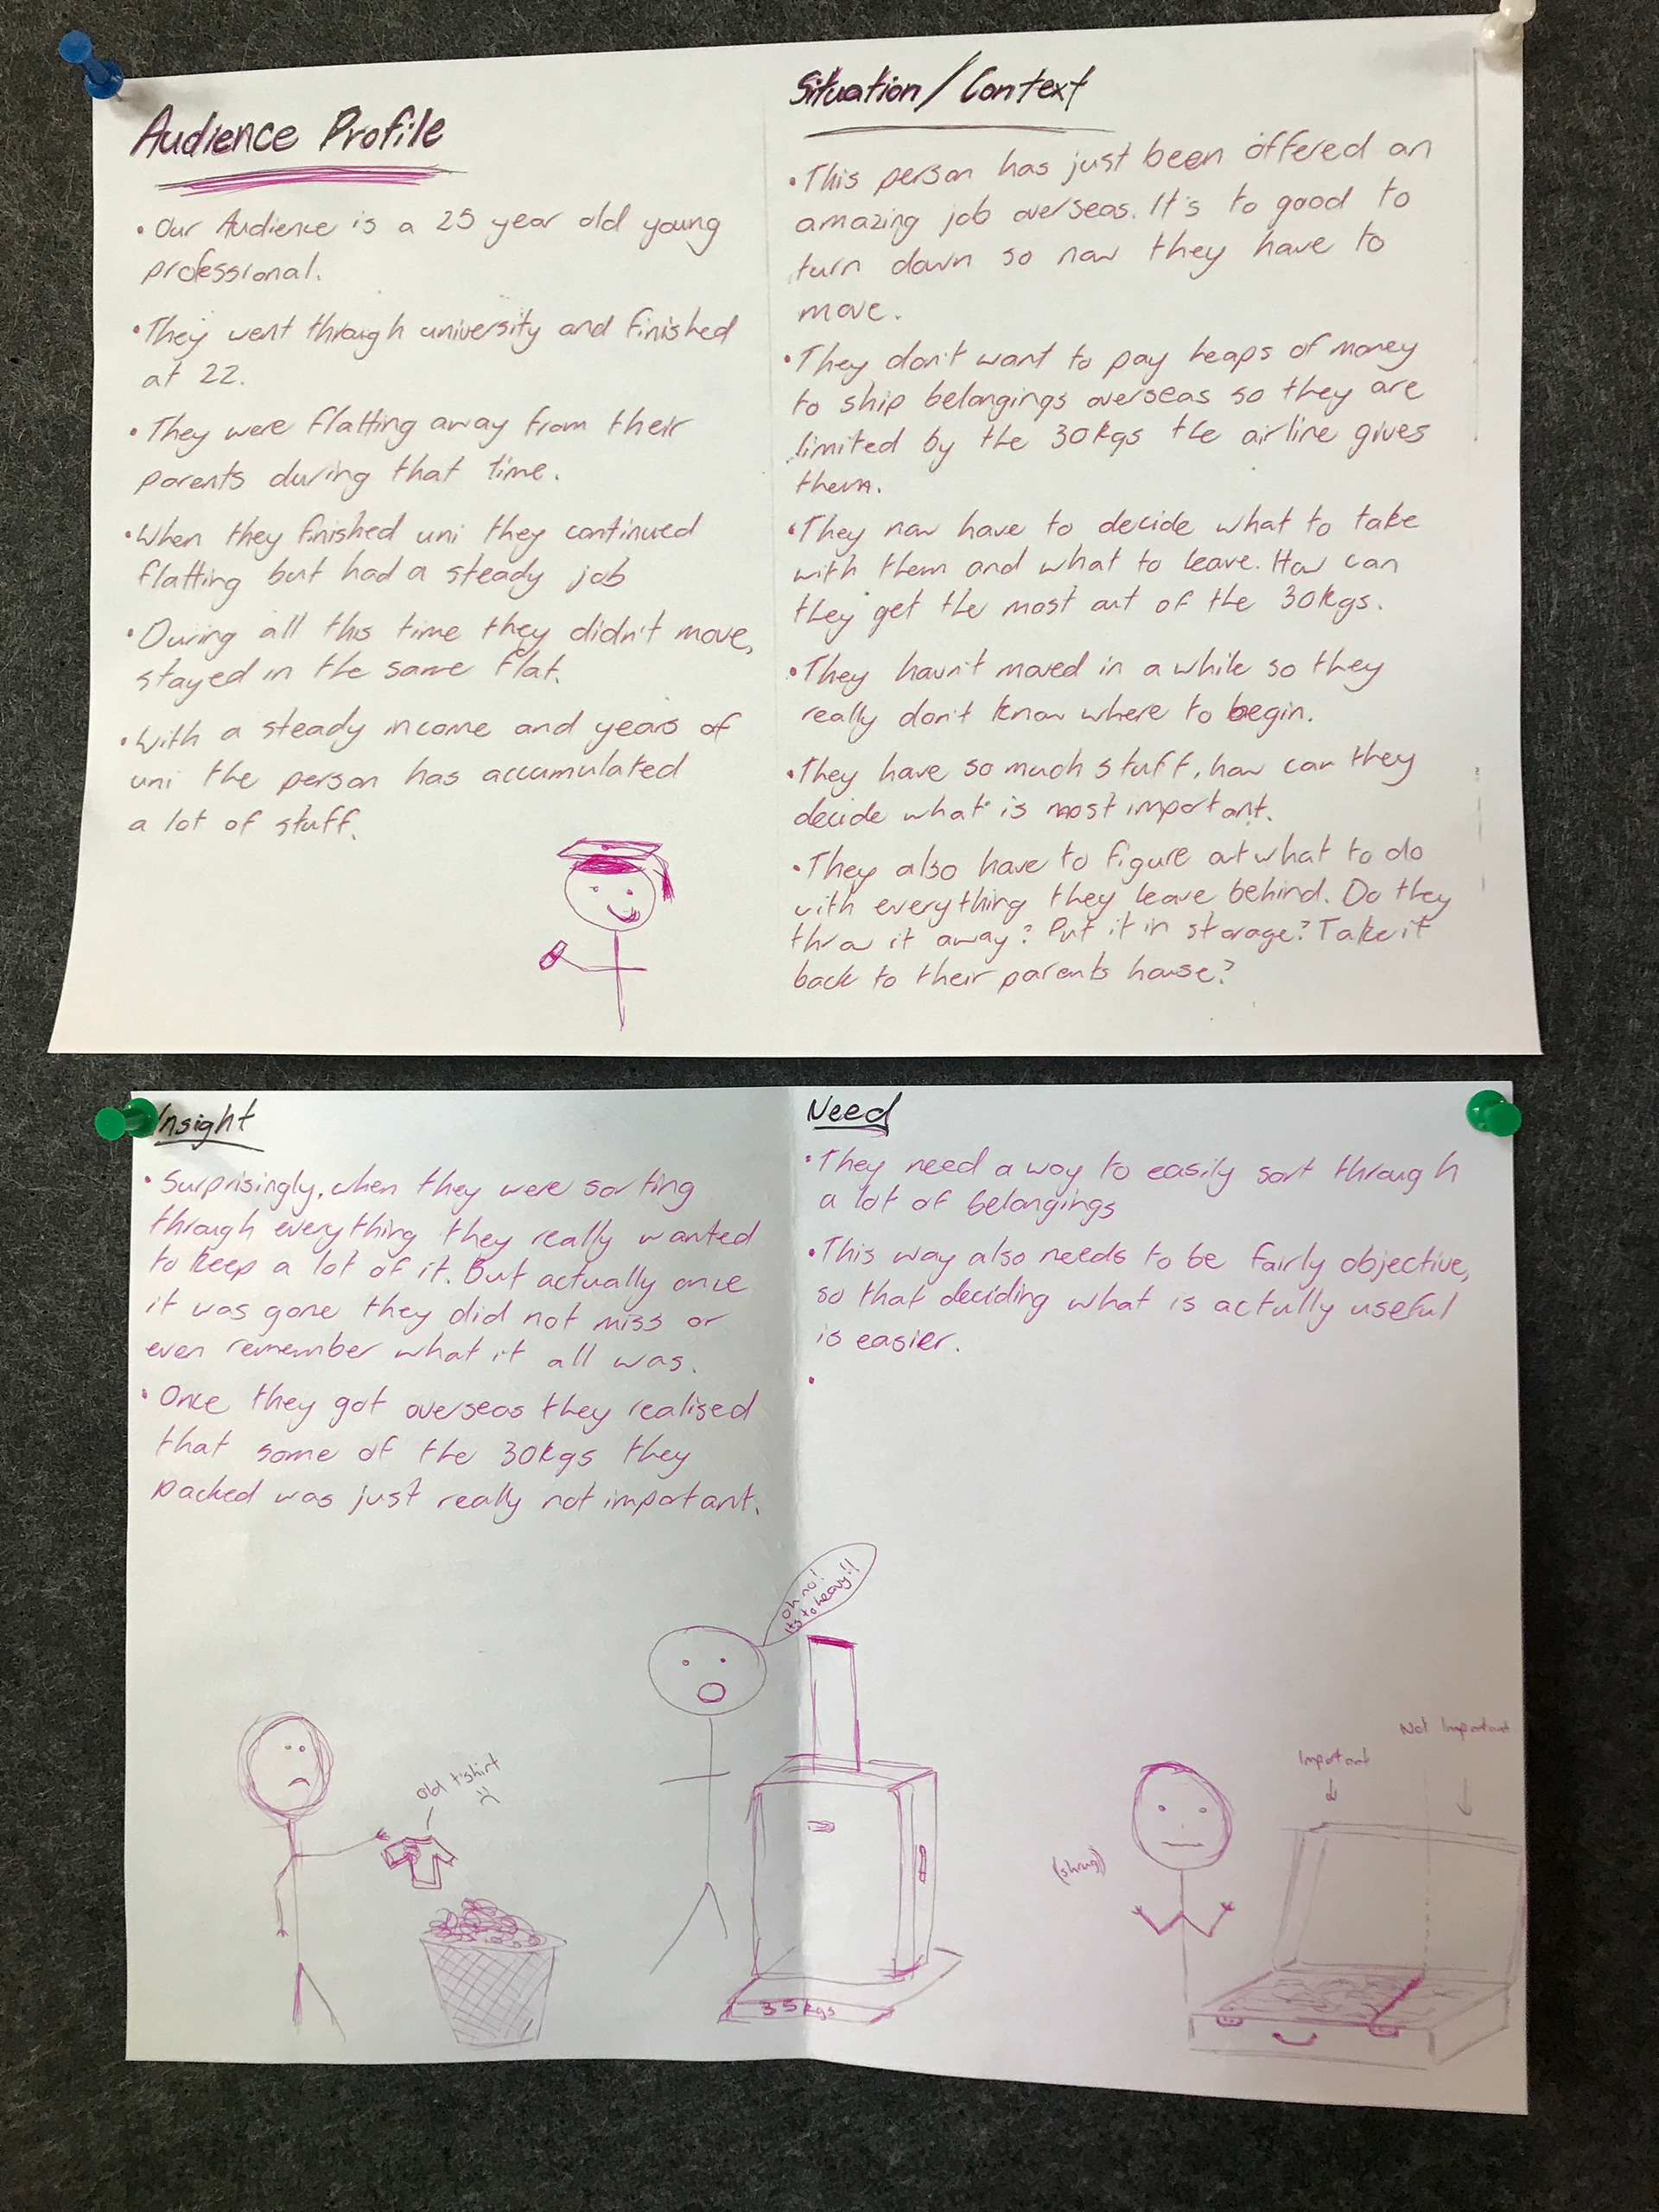 Audience Profile
• Our Audience is a 25 year old young
professional.
• They went through university and finished
at 22.
• They were flatting away from their
parents during that time.
• When they finished uni they continued
flatting but had a steady job
• During all this time they didn't move,
stayed in the same flat.
• With a steady income and years of
uni the person has accumulated
a lot of stuff.
Situation/Context
• This person has just been offered an
amazing job overseas. It's to good to
turn down so now they have to
move.
• They don't want to pay heaps of money
to ship belongings overseas so they are
limited by the 30kgs the airline gives
them.
• They now have to decide what to take
with them and what to leave. How can
they get the most out of the 30kgs.
• They havn't moved in a while so they
really don't know where to begin.
• They have so much stuff, how can they
decide what is most important.
• They also have to figure out what to do
with everything they leave behind. Do they
throw it away? Put it in storage? Take it
back to their parents house?
Insight
• Surprisingly, when they were sorting
through everything they really wanted
to keep a lot of it. But actually once
it was gone they did not miss or
even remember what it all was.
• Once they got overseas they realised
that some of the 30kgs they
packed was just really not important.
Need
• They need a way to easily sort through
a lot of belongings
• This way also needs to be fairly objective,
so that deciding what is actully useful
is easier.
•
oh no!
its to heavy!!
old t'shirt
35kgs
(shrug)
Important
Not Important